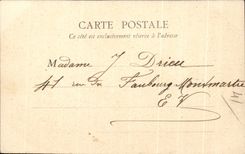 CARTE POSTALE
Ce côté est exclusivement réservé à l'adresse
Madame J Drieu
41 rue du Faubourg Montmartre
E V